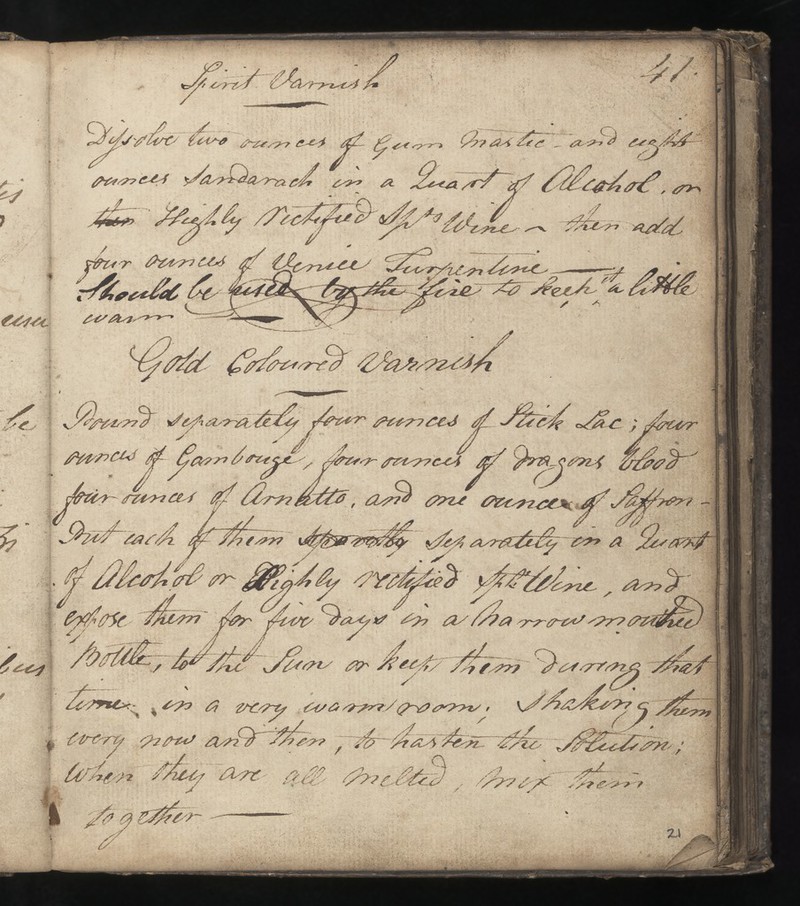 41.
Spirit Varnish
Dissolve two ounces of Gum Mastic - and eight
ounces Sandarach in a Quart of Alcohol, or
then Highly rectified Spts Wine ~ then add
four ounces of Venice Turpentine —
Should be used by the fire to keep it a little
warm —
Gold Coloured Varnish
Pound separately four ounces of Stick Lac; four
ounces of Gambouge, four ounces of dragons blood
four ounces of Arnatto, and one ounce of Saffron -
Put each of them separately in a Quart
of Alcohol or Highly rectified Spts Wine, and
expose them for five days in a narrow mouthed
Bottle, to the Sun or keep them during that
time in a very warm room; shaking them
every now and then, to hasten the Solution;
When they are all melted, mix them
together —
21
be